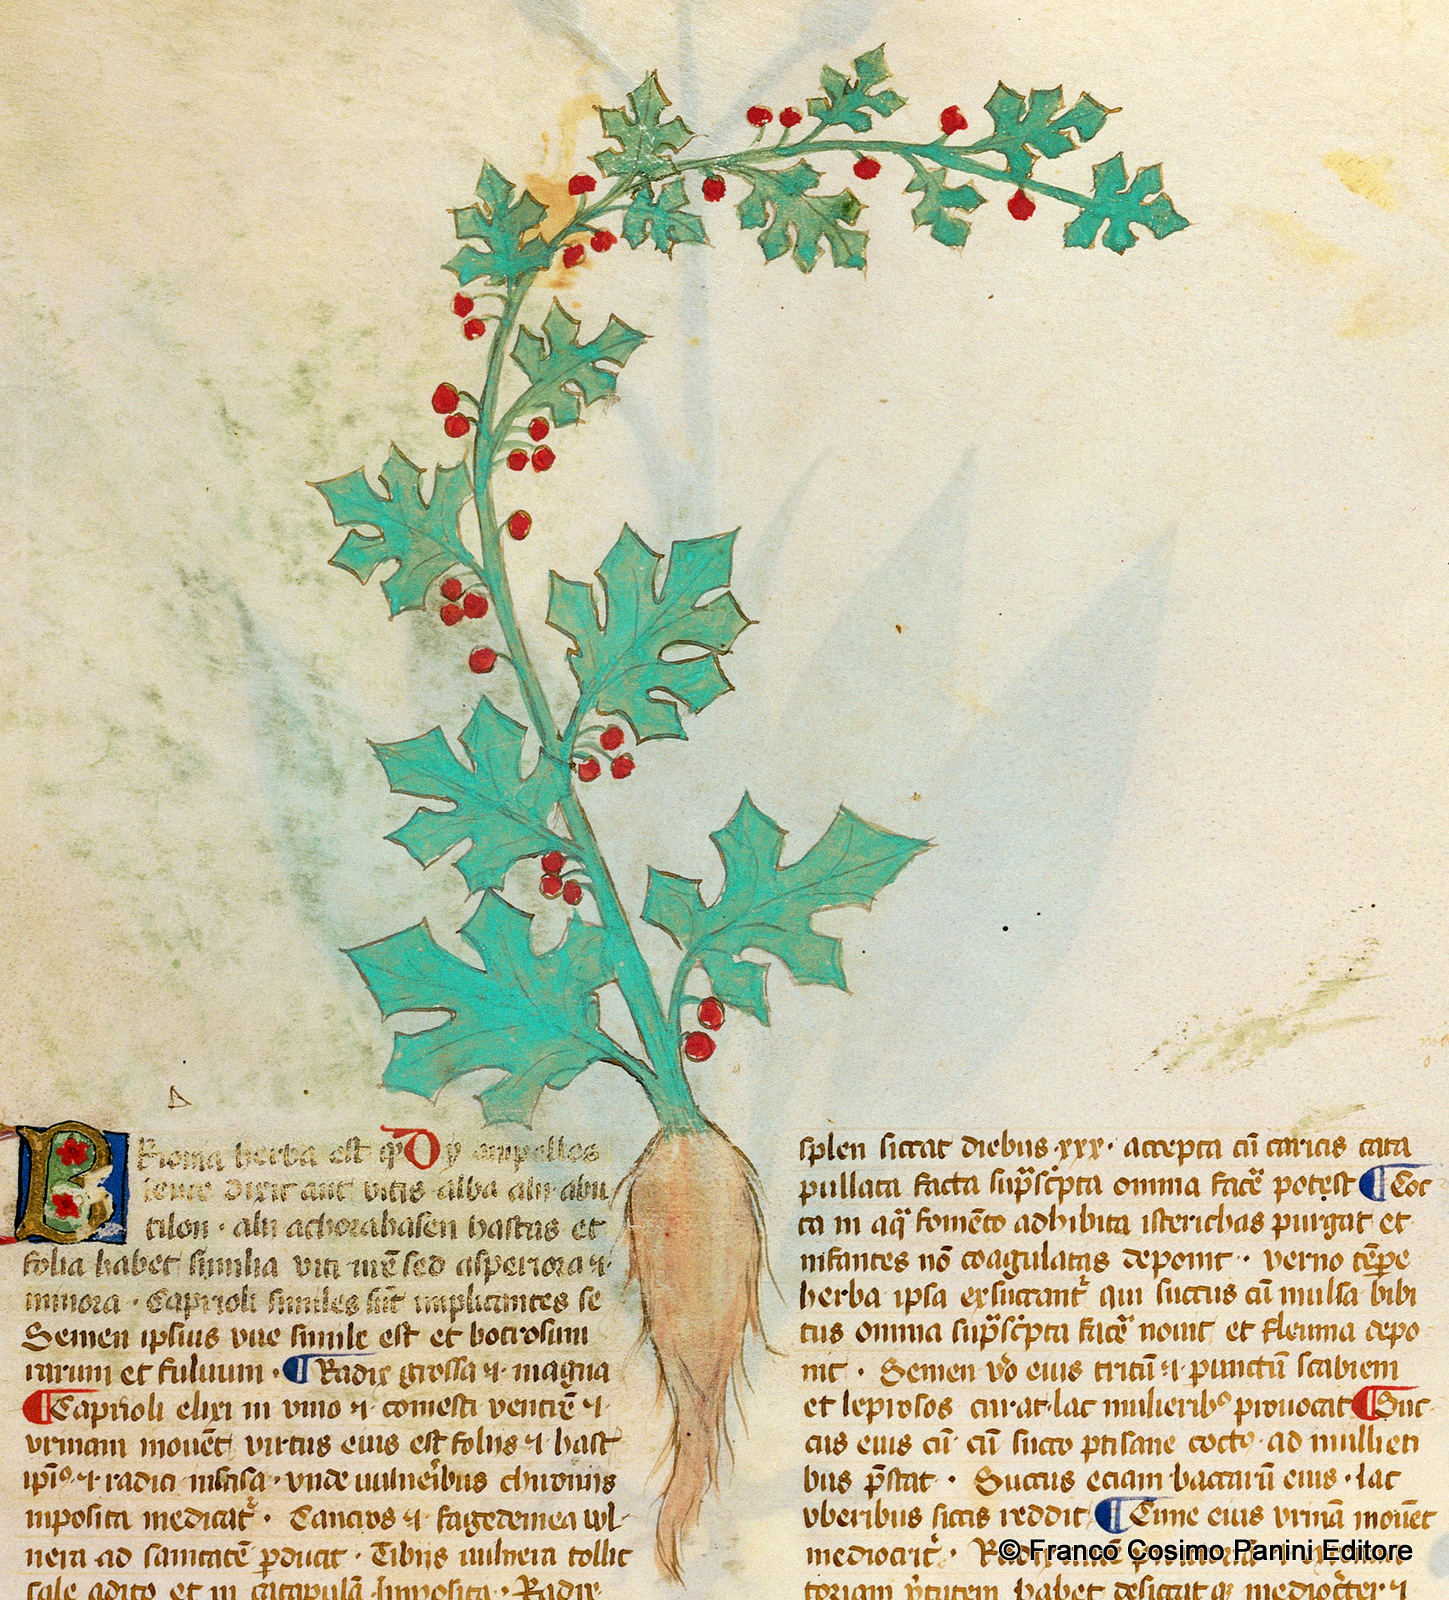 B
Rionia herba est q̄
Oy appellos
lence dixit aut vitis alba alii abu
tilon · alii achorabasen hastas et
folia habet similia viti me᷑ sed asperiora ⁊
minora · Caprioli similes sūt implicantes se
Semen ipsius vue simile est et botrosum
rarum et fuluum · ¶ Radix grossa ⁊ magna
¶ Caprioli elixi in vino ⁊ comesti ventrē ⁊
vrinam mouēt virtus eius est foliis ⁊ hast
ipiꝰ ⁊ radici insisa · vnde uulneribus chroniis
imposita medicat᷑ · Cancros ⁊ fagedenica vul
nera ad sanitatē ꝑducit · Tibiis uulnera tollit
sale addito et in catapula imposita · Radix
splen siccat diebus · xxx · accepta cū caricis cata
pullata facta sup̄sc̄pta omnia facē potest ¶ Coc
ta in aq̄ fomēto adhibita istericas purgat et
infantes nō coagulatas deponit · verno tēpe
herba ipsa exsuccant᷑ qui succus cū mulsa bibi
tus omnia sup̄sc̄pta facē nouit et fleuma depo
nit · Semen vͦo eius tritū ⁊ punctū scabiem
et leprosos curat lac mulieribꝰ prouocat ¶ Suc
cus eius cū succo ptisane cocto ad mulieri
bus p̄stat · Succus eciam baccarū eius · lac
vberibus siccis reddit ¶ Cime eius vrinā mouēt
mediocrit᷑ ·
toriam v̓tutem habet desiccat q̄ mediocriter ⁊
© Franco Cosimo Panini Editore